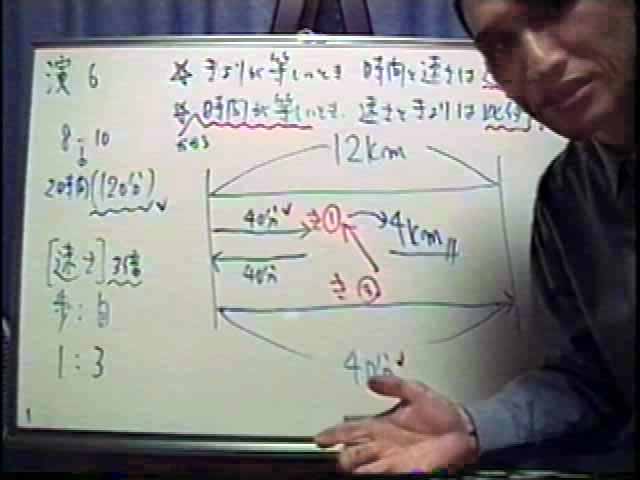 演6
☆ きょりが等しいとき 時間と速さは
☆ 時間が等しいとき、速さときょりは比例
8-10
2時間(120分)
[速さ] 3倍
歩:自
1:3
12km
40分
き① 4km
40分
き③
40分